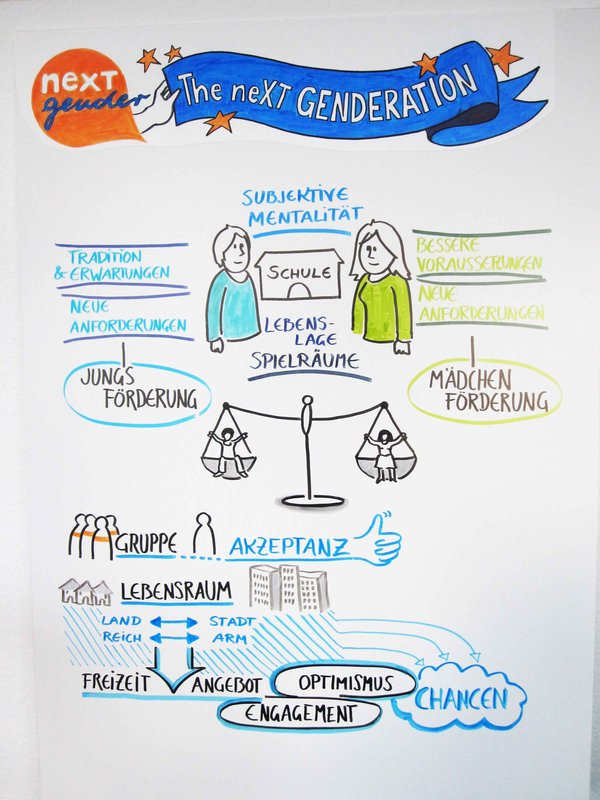 neXT
gender
The neXT GENDERATION
SUBJEKTIVE
MENTALITÄT
TRADITION
& ERWARTUNGEN
NEUE
ANFORDERUNGEN
JUNGS
FÖRDERUNG
SCHULE
LEBENS-
LAGE
SPIELRÄUME
BESSERE
VORAUSSERUNGEN
NEUE
ANFORDERUNGEN
MÄDCHEN
FÖRDERUNG
GRUPPE AKZEPTANZ
LEBENSRAUM
LAND STADT
REICH ARM
FREIZEIT ANGEBOT OPTIMISMUS
ENGAGEMENT
CHANCEN